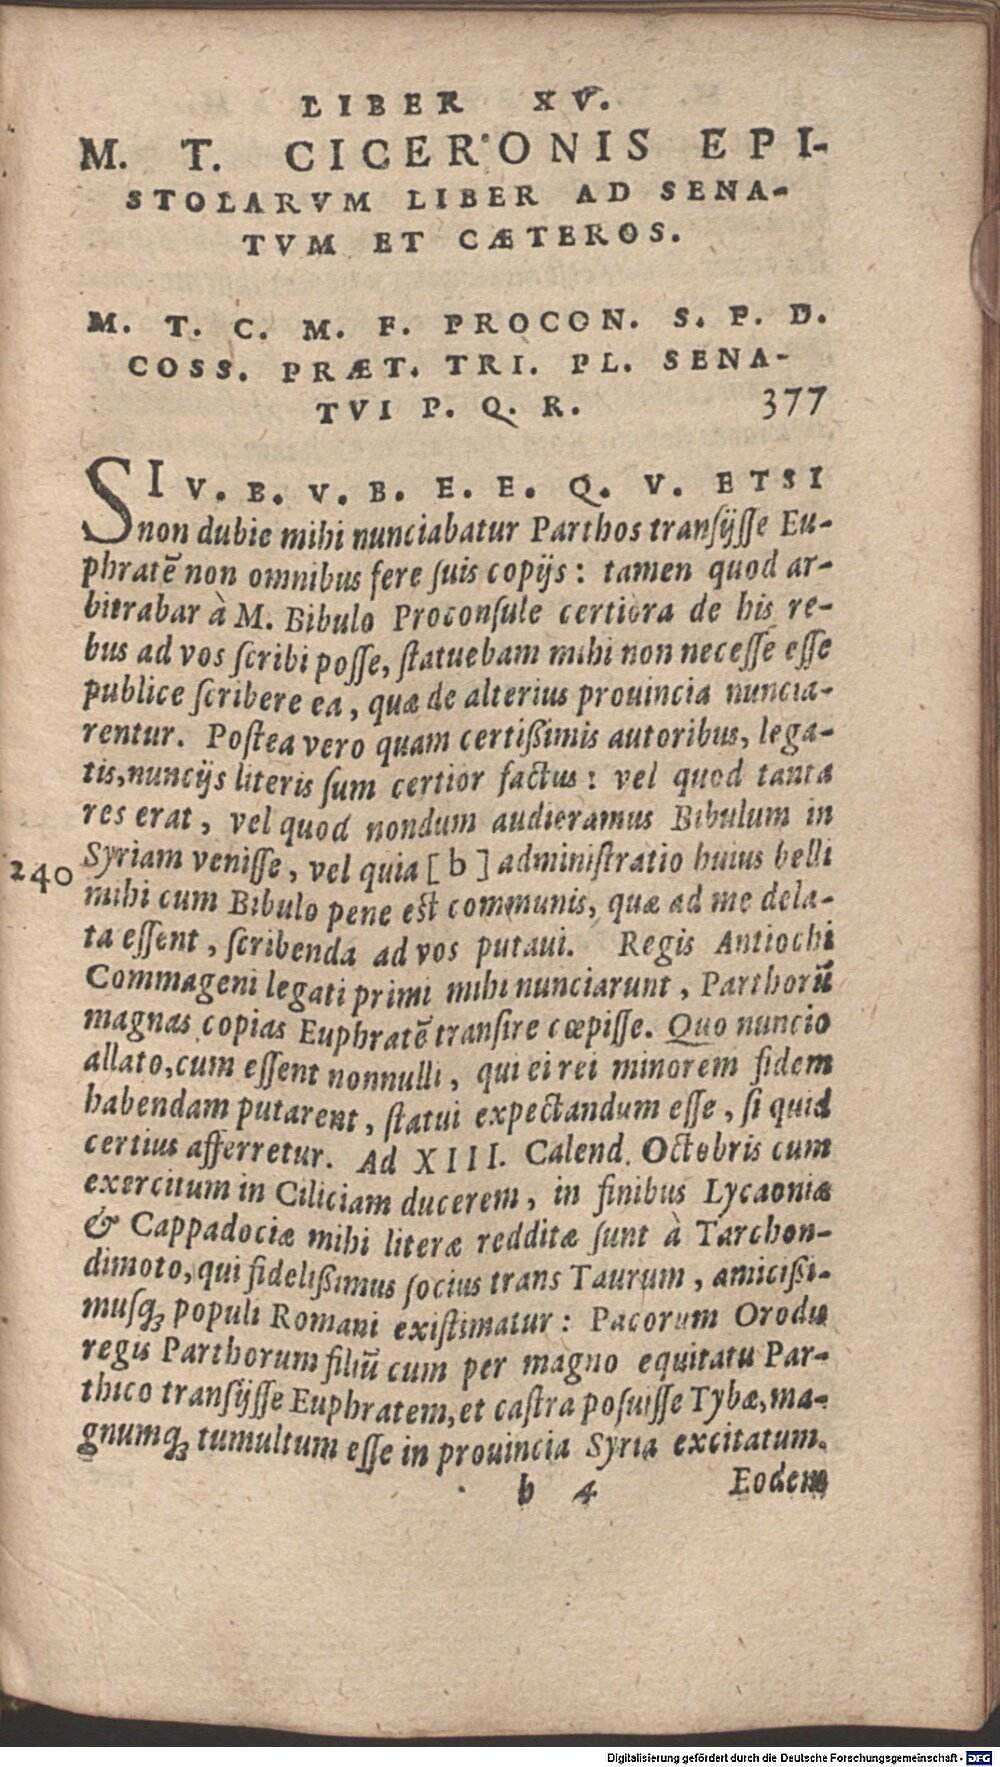 LIBER XV.
M. T. CICERONIS EPI-
STOLARVM LIBER AD SENA-
TVM ET CÆTEROS.
M. T. C. M. F. PROCON. S. P. D.
COSS. PRÆT. TRI. PL. SENA-
TVI P. Q. R. 377
SI V. B. V. B. E. E. Q. V. ETSI
non dubie mihi nunciabatur Parthos transijsse Eu-
phratē non omnibus fere suis copijs: tamen quod ar-
bitrabar à M. Bibulo Proconsule certiora de his re-
bus ad vos scribi posse, statuebam mihi non necesse esse
publice scribere ea, quæ de alterius prouincia nuncia-
rentur. Postea vero quam certißimis autoribus, lega-
tis, nuncijs literis sum certior factus: vel quod tanta
res erat, vel quod nondum audieramus Bibulum in
Syriam venisse, vel quia [b] administratio huius belli
240
mihi cum Bibulo pene est communis, quæ ad me dela-
ta essent, scribenda ad vos putaui. Regis Antiochi
Commageni legati primi mihi nunciarunt, Parthorū
magnas copias Euphratē transire cœpisse. Quo nuncio
allato, cum essent nonnulli, qui ei rei minorem fidem
habendam putarent, statui expectandum esse, si quid
certius afferretur. Ad XIII. Calend. Octobris cum
exercitum in Ciliciam ducerem, in finibus Lycaoniæ
& Cappadociæ mihi literæ redditæ sunt à Tarchon-
dimoto, qui fidelißimus socius trans Taurum, amicißi-
musq; populi Romani existimatur: Pacorum Orodis
regis Parthorum filiū cum per magno equitatu Par-
thico transijsse Euphratem, et castra posuisse Tybæ, ma-
gnumq; tumultum esse in prouincia Syria excitatum.
b 4 Eodem
Digitalisierung gefördert durch die Deutsche Forschungsgemeinschaft - DFG